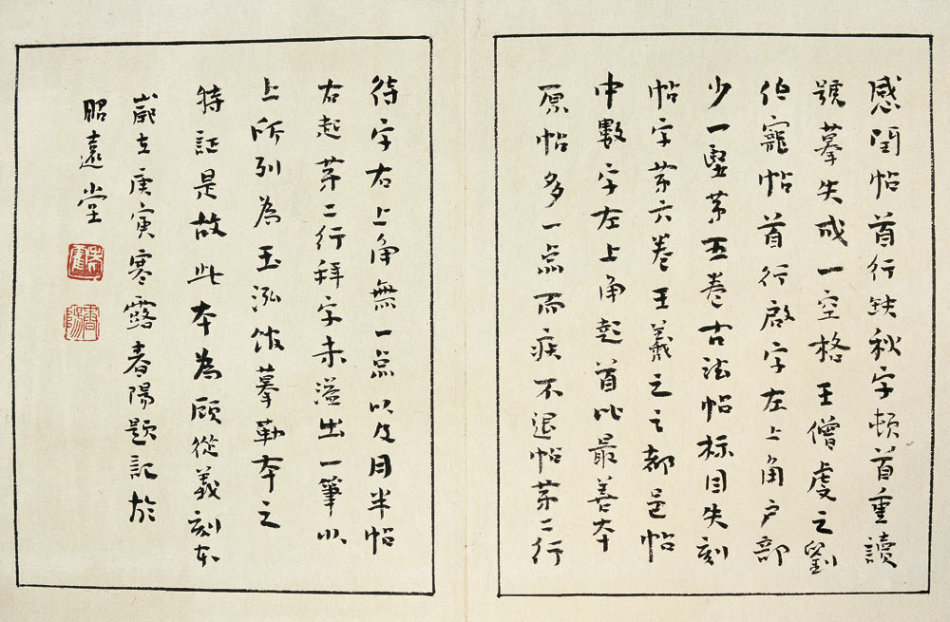 感閏帖首行缺秋字頓首重讀
號摹失成一空格王僧虔之劉
伯寵帖首行啟字左上角户部
少一竪苐五卷古法帖标目失刻
帖字苐六卷王羲之之都邑帖
中數字左上角起首比最善本
原帖多一点而疾不退帖苐二行
待字右上角無一点以及月半帖
右起苐二行拜字未溢出一筆以
上所列為玉泓館摹勒本之
特証是故此本為顧從義刻本
歲在庚寅寒露春陽題記於
昭遠堂